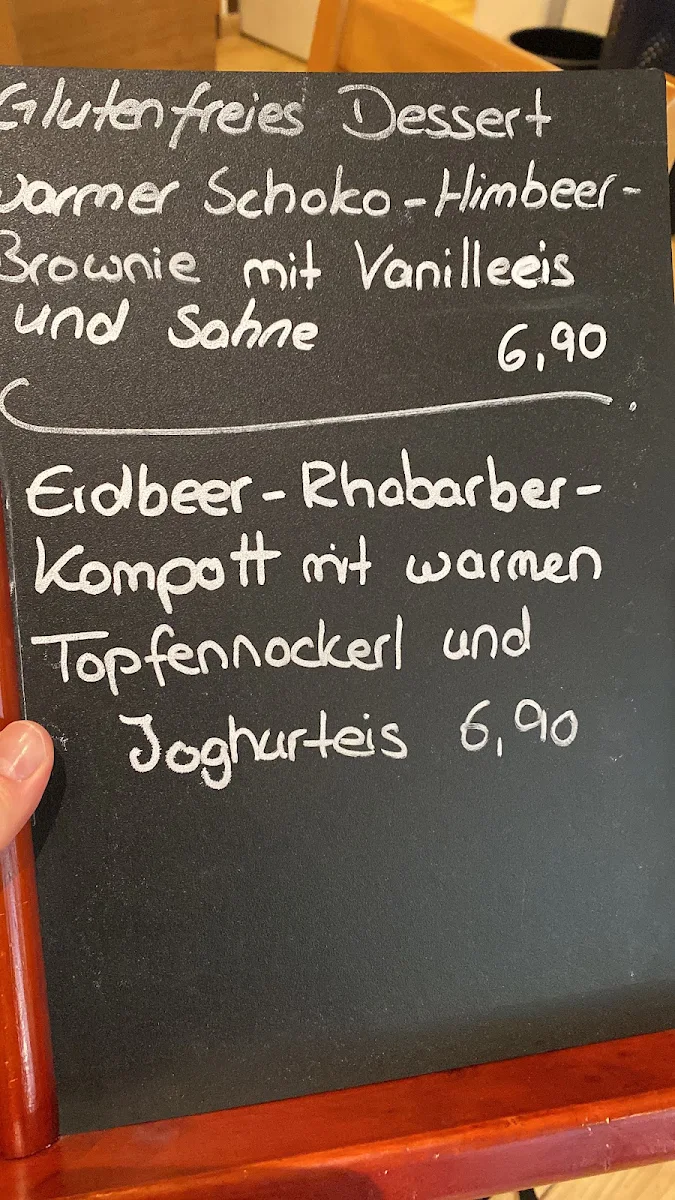 Glutenfreies Dessert
warmer Schoko-Himbeer-
Brownie mit Vanilleeis
und Sahne 6,90
Erdbeer-Rhabarber-
Kompott mit warmen
Topfennockerl und
Joghurteis 6,90